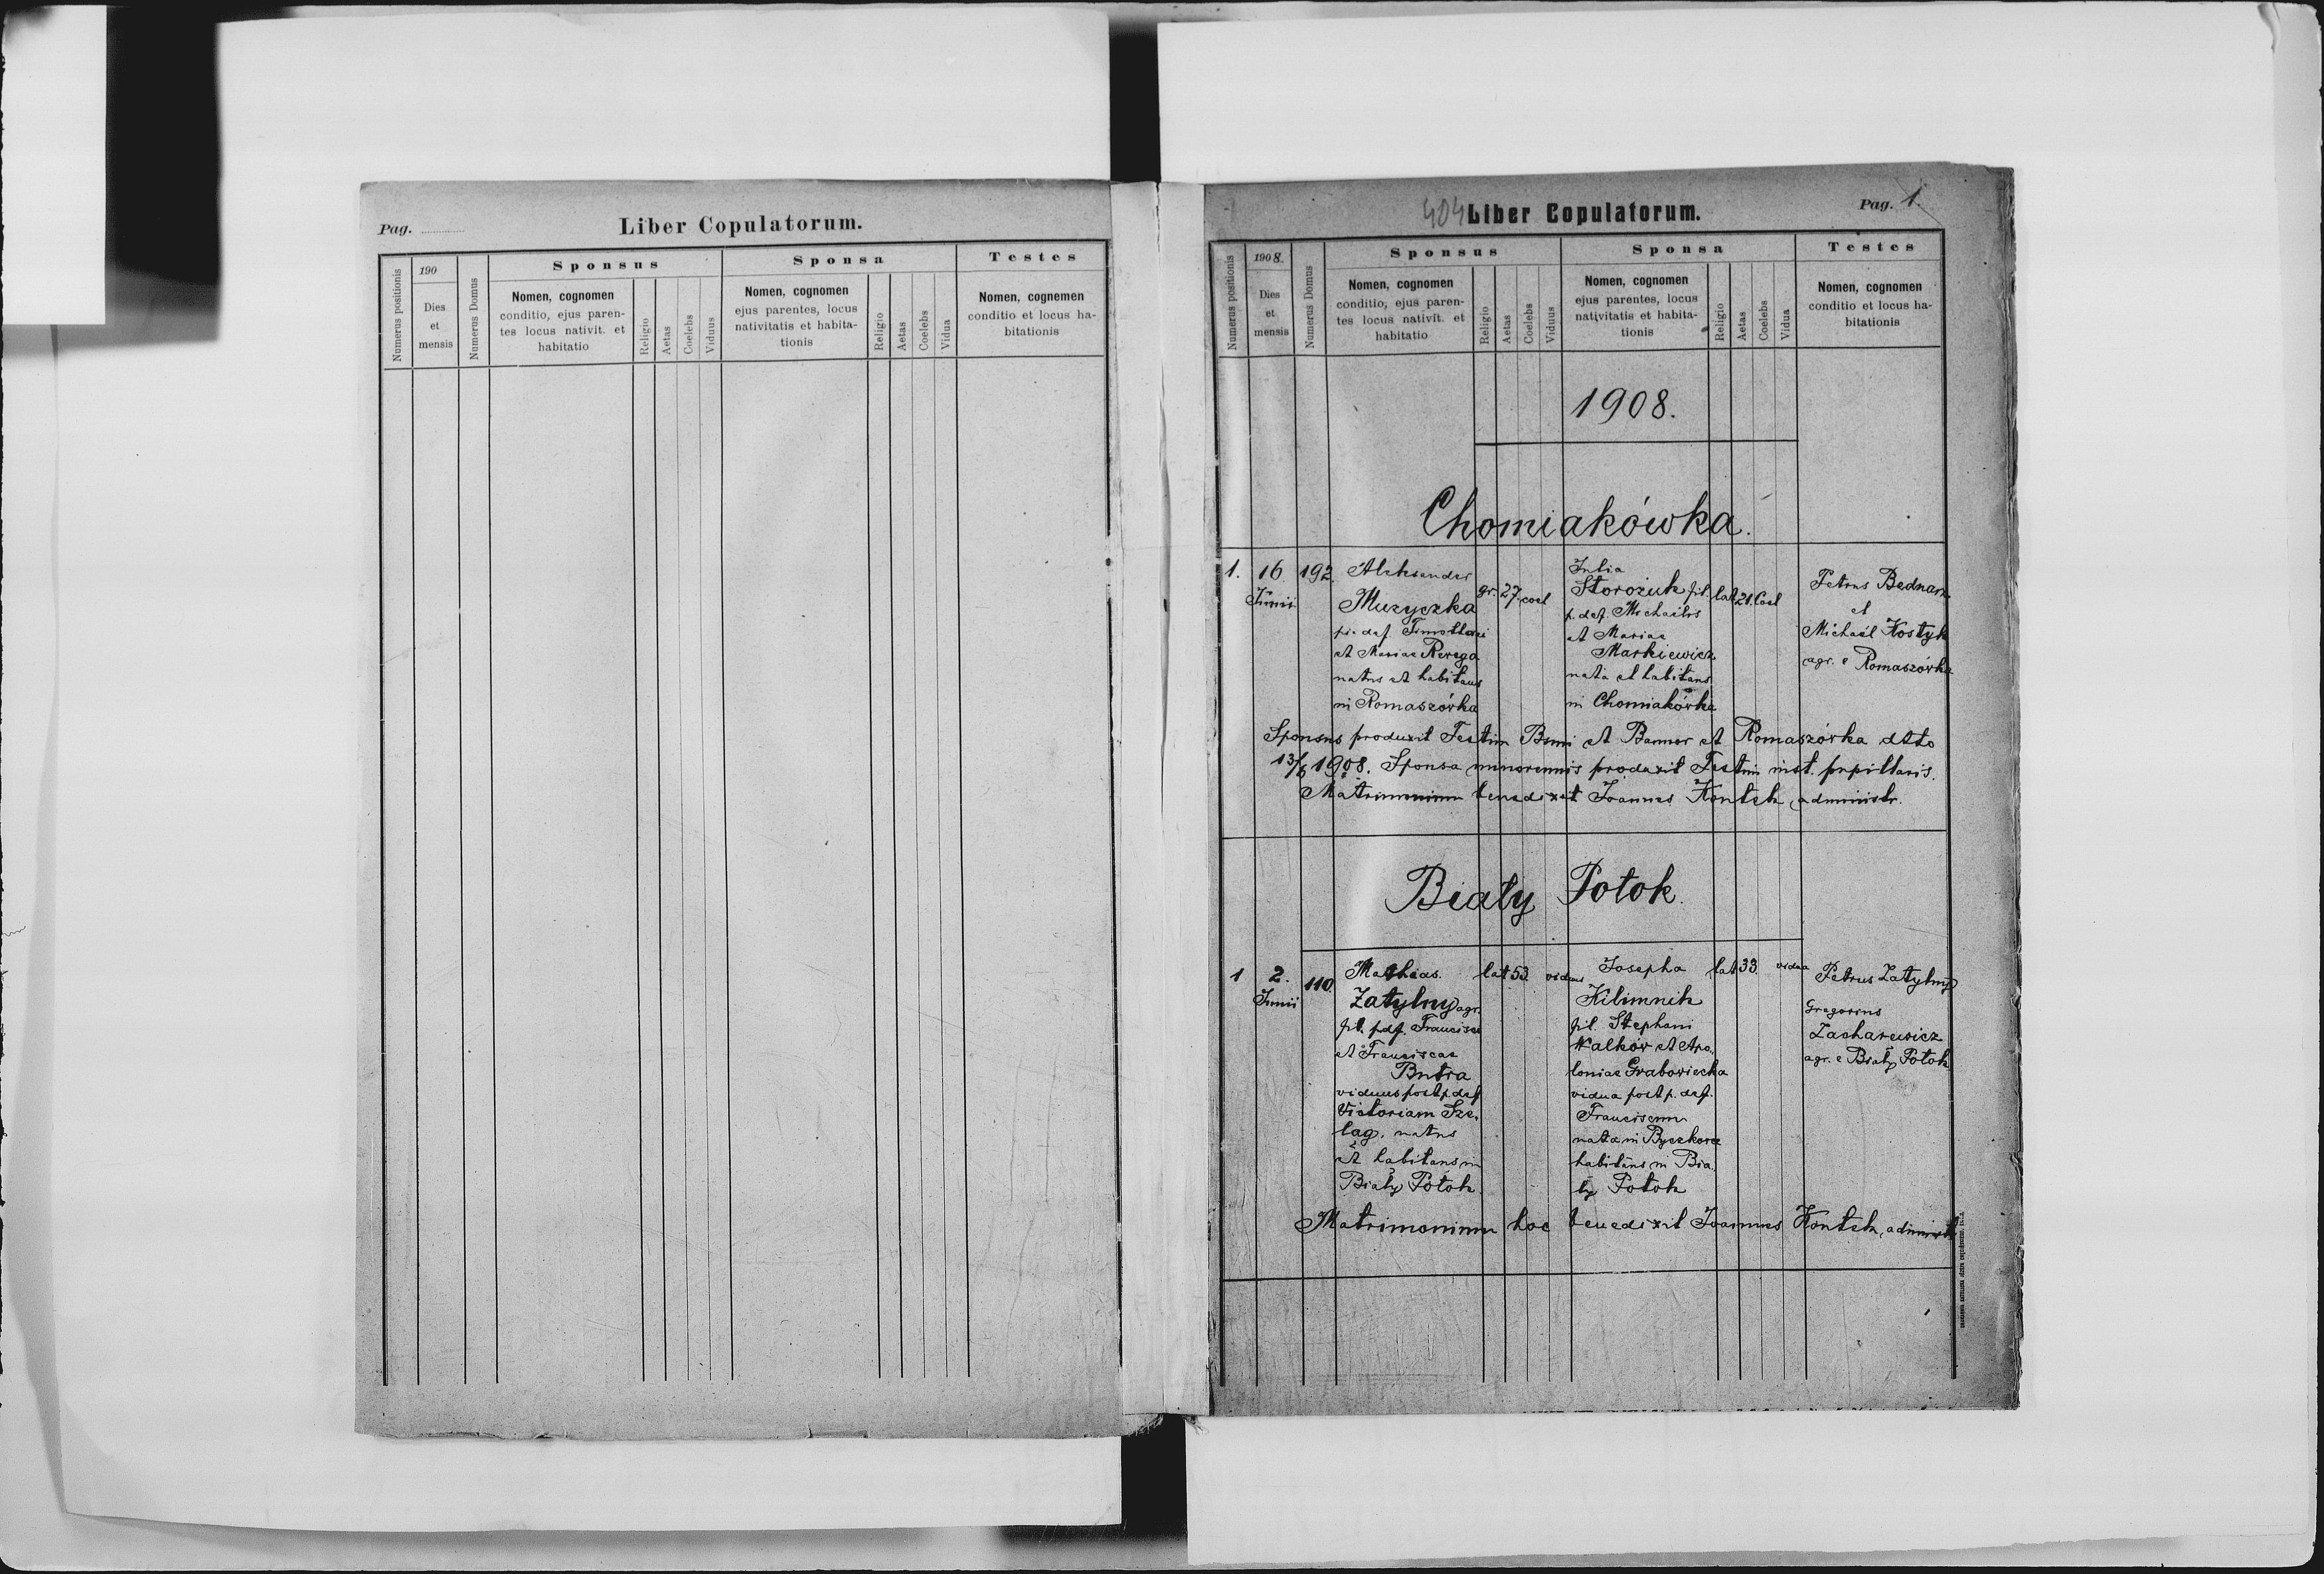 Pag.
Liber Copulatorum.
Numerus positionis
190
Dies
et
mensis
Numerus Domus
Sponsus
Nomen, cognomen
conditio, ejus paren-
tes locus nativit. et
habitatio
Religio
Aetas
Coelebs
Viduus
Sponsa
Nomen, cognomen
ejus parentes, locus
nativitatis et habita-
tionis
Religio
Aetas
Coelebs
Vidua
Testes
Nomen, cognemen
conditio et locus ha-
bitationis
404
Liber Copulatorum.
Pag. 1.
Numerus positionis
1908.
Dies
et
mensis
Numerus Domus
Sponsus
Nomen, cognomen
conditio, ejus paren-
tes locus nativit. et
habitatio
Religio
Aetas
Coelebs
Viduus
Sponsa
Nomen, cognomen
ejus parentes, locus
nativitatis et habita-
tionis
Religio
Aetas
Coelebs
Vidua
Testes
Nomen, cognomen
conditio et locus ha-
bitationis
1908.
Chomiakówka.
1.
16
Junii
192
Aleksander
Muzyczka
p. def. Timothaei
et Mariae Rerega
natus et habitans
in Romaszówka
gr.
27.
coel
Julia
Storożuk fil.
p. def. Michaëlis
et Mariae
Markiewicz
nata et habitans
in Chomiakówka
lat
21.
Coel
Petrus Bednarz
et
Michaël Kostyk
agr. e Romaszówka
Sponsus produxit Testim Bsmi et Bannor et Romaszówka dtto
13/6 1908. Sponsa minorennis produxit Testim inst. pupillaris.
Matrimonium benedixit Joannes Kontek, administr.
Biały Potok.
1
2.
Junii
110.
Mathias.
Zatylny agr.
fil. p. def. Francisci
et Franciscae
Butra
viduus post p. def
Victoriam Sze-
ląg. natus
et habitans in
Biały Potok
lat
53
viduus
Josepha
Kilimnik
fil. Stephani
Walków et Apo-
loniae Graboviecka
vidua post p. def.
Franciscum
nata in Byczkowce
habitans in Bia-
ły Potok
lat
33.
vidua
Petrus Zatylny
Gregorius
Zacharewicz
agr. e Biały Potok
Matrimonium hoc benedixit Joannes Kontek, administr